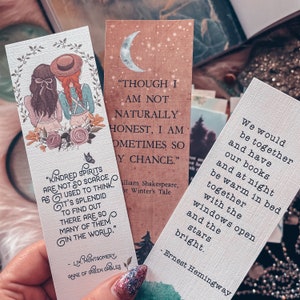 "KINDRED SPIRITS
ARE NOT SO SCARCE
AS I USED TO THINK.
IT'S SPLENDID
TO FIND OUT
THERE ARE SO
MANY OF THEM
IN THE WORLD."
- L.M. MONTGOMERY,
ANNE OF GREEN GABLES
"THOUGH I
AM NOT
NATURALLY
HONEST, I AM
SOMETIMES SO
BY CHANCE."
William Shakespeare,
Winter's Tale
We would
be together
and have
our books
and at night
be warm in bed
together
with the
windows open
and the
stars
bright.
- Ernest Hemingway